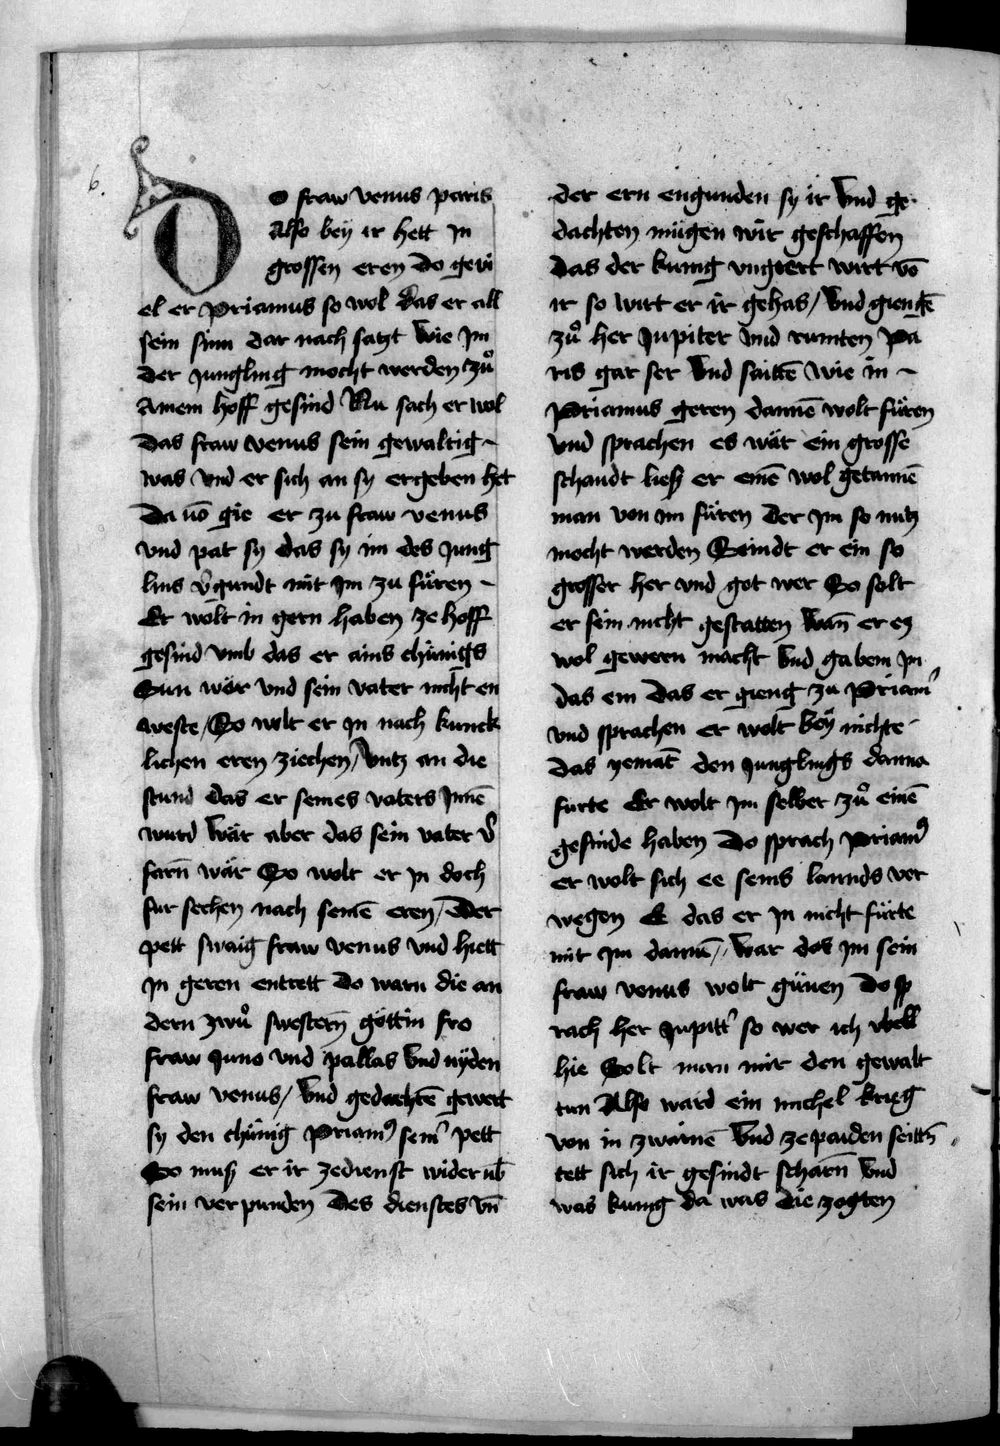 6.
Do fraw venus paris
Also bey ir hett jn
grossen eren Do gevi
el er Priamus so wol das er all
sein sinn dar nach satzt Wie jm
der jungling mocht werden zuͦ
Ainem hoff gesind Nu sach er wol
das fraw venus sein gewaltig
was vnd er sich an sy ergeben het
Da võ gie er zu fraw venus
vnd pat sy das sy im des jung
lins v̉gundt mit jm zu füren
Er wolt in gern haben ze hoff
gesind vmb das er ains chünigs
Sun wär vnd sein vater nicht en
weste / So wolt er jn nach kunck
lichen eren ziechen / vntz an die
stund das er seines vaters jnnē
wurd Wär aber das sein vater v̉
farn̄ wär So wolt er jn doch
fur sechen nach seinē eren / Der
pett swaig fraw venus vnd hiett
jn geren entrett Do warn die an
dern zwuͦ swestern̄ göttin fro
fraw Juno vnd pallas Vnd nyden
fraw venus / Vnd gedachtē gewert
sy den chünig Priamꝰ seinˀ pett
So muß er ir zedienst wider vb̄
sein ver punden Des dienstes vn̄
der ern engunden sy ir Vnd ge
dachten mügen wir geschaffen
das der kunig vngeert wirt võ
ir so wirt er ir gehas / Vnd giengē
zuͦ her Jupiter vnd rumten Pa
ris gar ser Vnd saittē Wie in
Priamus geren dannē wolt füren
vnd sprachen es wär ein grosse
schandt ließ er einē wol getannē
man von im füren der jm so nutz
mocht werden Seindt er ein so
grosser her vnd got wer So solt
er sein nicht gestatten Wan̄ er ez
wol gewern macht Vnd gabem jn
das ein das er gieng zu Priamˀ
vnd sprachen er wolt bey nichte
das yemāt den junglings danna
furte Er wolt jm selber zuͦ einē
gesinde haben Do sprach Priamꝰ
er wolt sich ee seins lannds ver
wegen E das er jn nicht fürte
mit jm dannē / War das jm sein
fraw venus wolt günen Do sp
rach her Jupittˀ so wer ich vbell
hie Solt man mir den gewalt
tun Also ward ein michel krieg
von in zwainē Vnd ze paiden seittn̄
tett sich ir gesindt scharn̄ Vnd
was kunig da was Die zogten